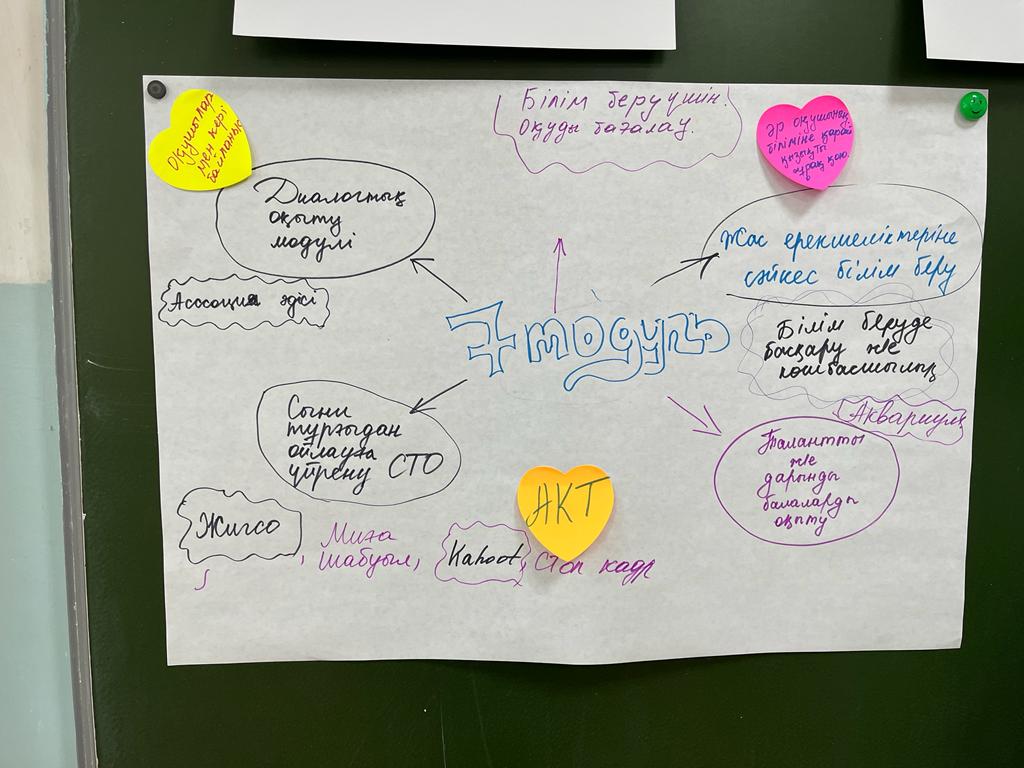 Оқушылар
мен кері
байланыс
Білім беру үшін
оқуды бағалау.
әр оқушының
біліміне қарай
қызықты
сұрақ қою.
Диалогтық
оқыту
модулі
Жас ерекшеліктеріне
сәйкес білім беру
Ассоция әдісі
7 модуль
Білім беруде
басқару және
көшбасшылық
Сыни
тұрғыдан
ойлауға
үйрену СТО
Аквариум
Талантты
және
дарынды
балаларды
оқыту
АКТ
Жигсо
, Миға
шабуыл,
Kahoot,
Стоп кадр